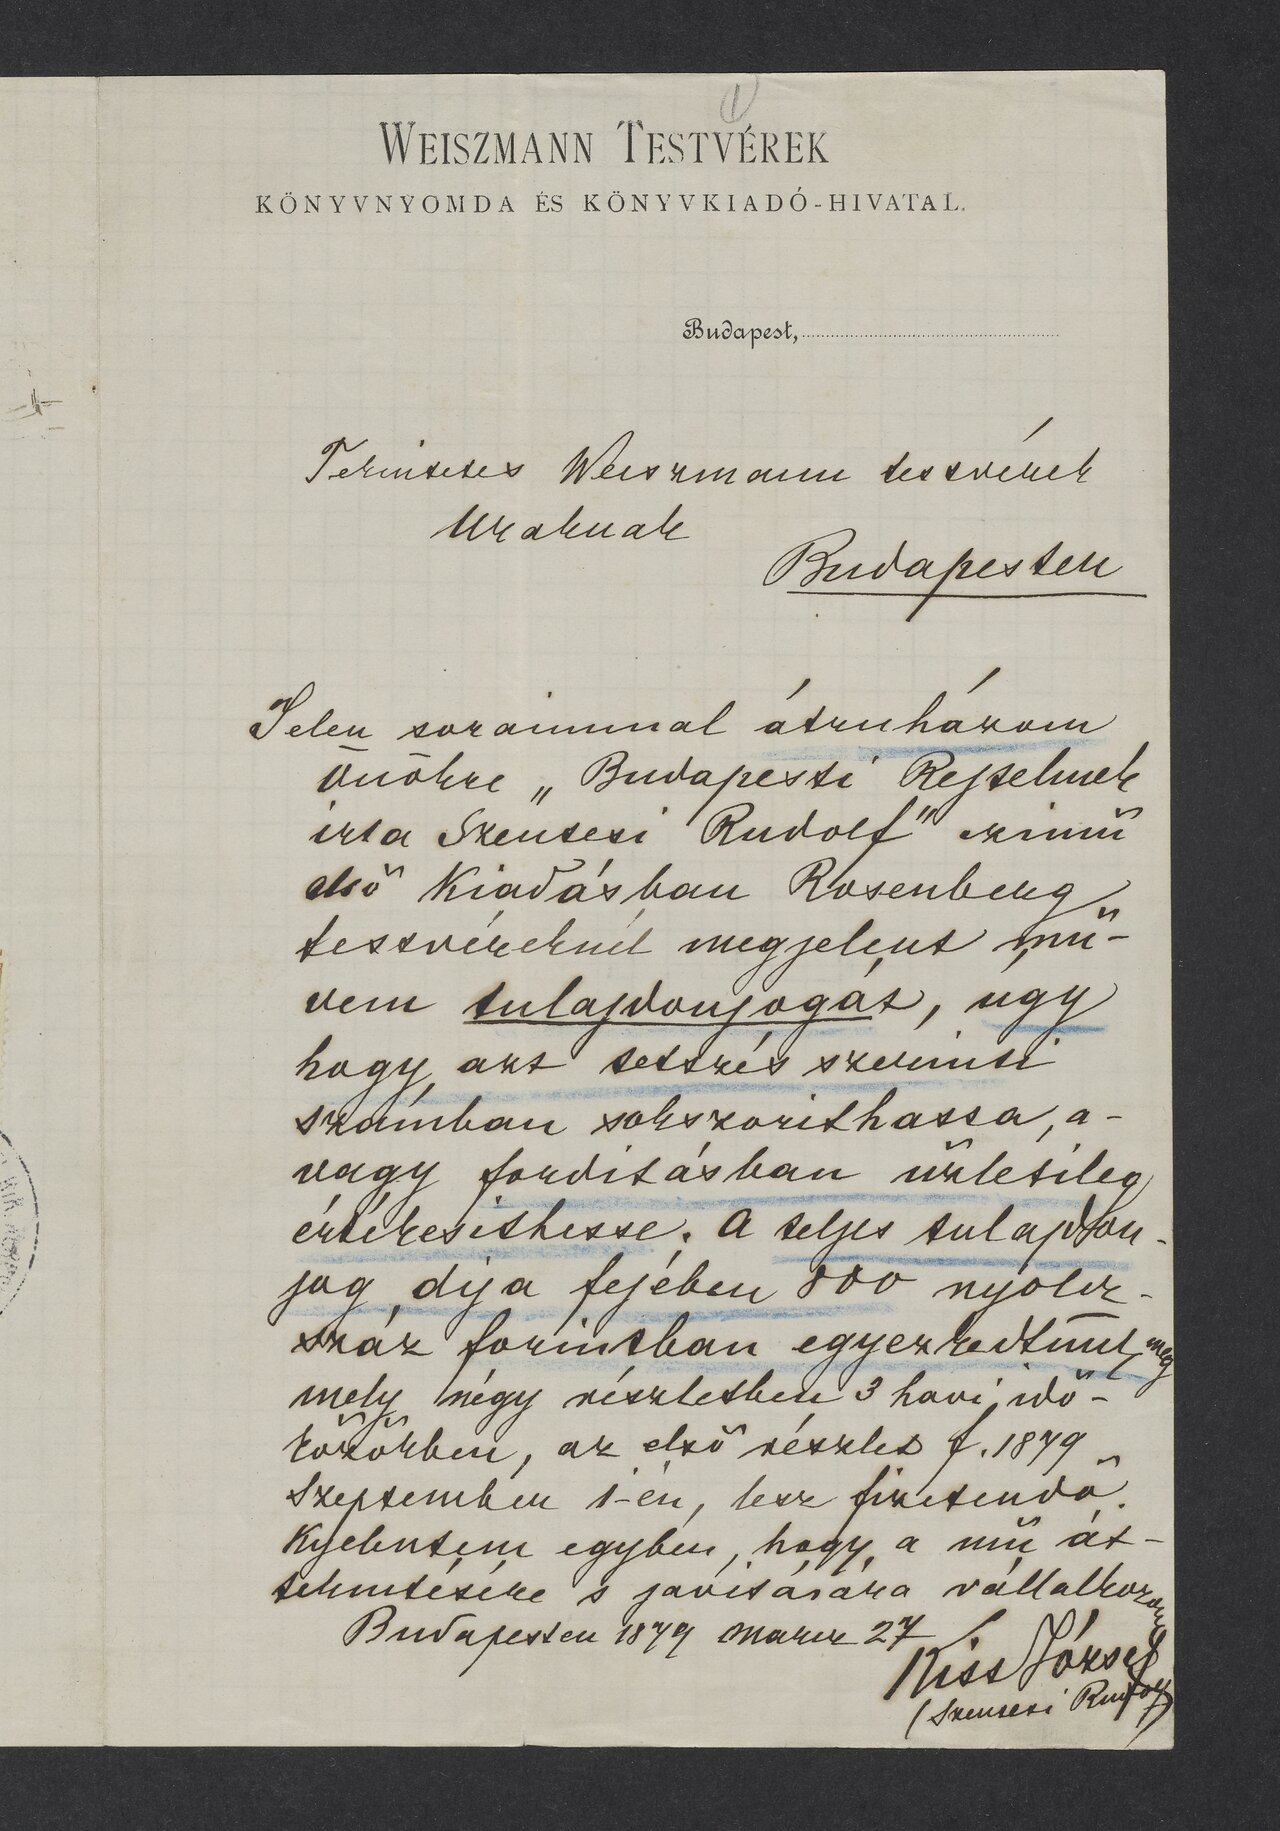 WEISZMANN TESTVÉREK
KÖNYVNYOMDA ÉS KÖNYVKIADÓ-HIVATAL.
Budapest,
Tekintetes Weiszmann testvérek
Uraknak
Budapesten
Jelen soraimmal átruházom
önökre „Budapesti Rejtelmek
irta Szentesi Rudolf" czimü
első kiadásban Rosenberg
testvéreknél megjelent mü-
vem tulajdonjogát, ugy
hogy azt tetszés szerinti
számban sokszorithassa, a-
vagy forditásban üzletileg
értékesithesse. A teljes tulajdon-
jog dija fejében 800 nyolcz-
száz forintban egyezkedtünk meg
mely négy részletben 3 havi idő-
közökben, az első részlet f. 1879
Szeptember 1-én, lesz fizetendő.
Kijelentem egyben, hogy a mű át-
tekintésére s javitására vállalkozom
Budapesten 1879 marcz 27
Kiss József
(Szentesi Rudolf)